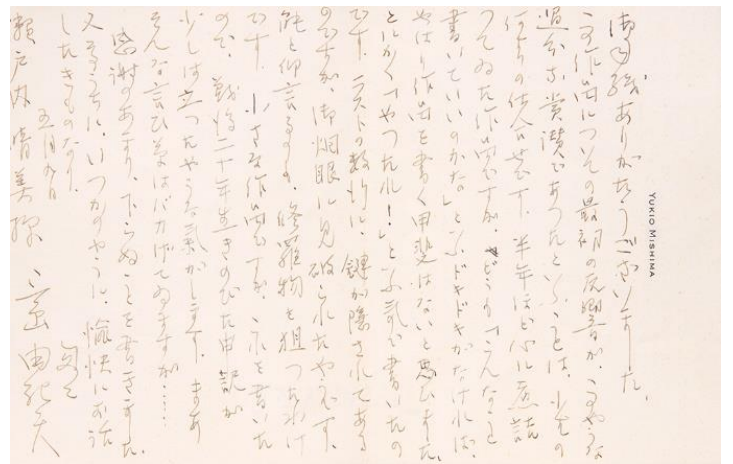 YUKIO MISHIMA
御手紙ありがたうございました。
この作品についての最初の反響が、このやうな
過分な賞讃であつたといふことは、小生の
何よりの仕合せです。半年ほど心に
つてゐた作品ですが、どうも「こんなことを
書いていいのかな」といふドキドキがなければ、
やはり作品を書く甲斐はないと思ひました。
とにかく「やつつけれ!」といふ気で書いたの
です。ラストの数行に、鍵が隠されてある
のですが、御炯眼に見破られたやうです。
能と仰言るのも、修羅物を狙つたわけ
です。小さな作品ですが、これを書いた
ので、戦後二十年生きのびた申訳が
少しは立つたやうな気がします。まあ
そんな言ひ草はバカげてゐますが……
感謝のあまり、下らぬことを書きました。
又そのうちに、いつかのやうに、愉快にお話
したきものなり。匆々
五月九日
三島由紀夫
瀬戸内晴美様